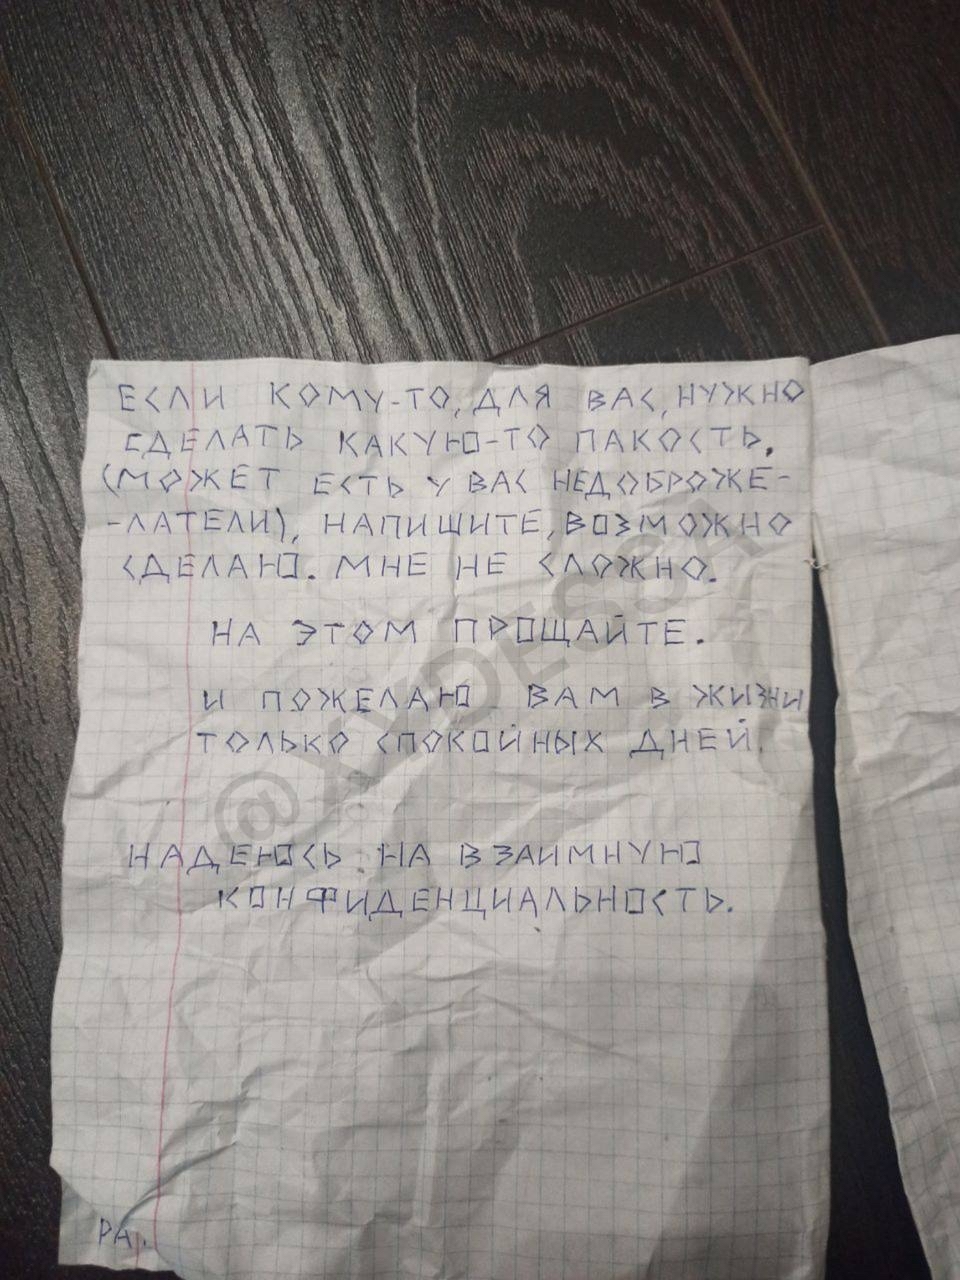 ЕСЛИ КОМУ-ТО, ДЛЯ ВАС, НУЖНО
СДЕЛАТЬ КАКУЮ-ТО ПАКОСТЬ,
(МОЖЕТ ЕСТЬ У ВАС НЕДОБРОЖЕ-
-ЛАТЕЛИ), НАПИШИТЕ, ВОЗМОЖНО
СДЕЛАЮ. МНЕ НЕ СЛОЖНО.
НА ЭТОМ ПРОЩАЙТЕ.
И ПОЖЕЛАЮ ВАМ В ЖИЗНИ
ТОЛЬКО СПОКОЙНЫХ ДНЕЙ.
@XYDESSA
НАДЕЮСЬ НА ВЗАИМНУЮ
КОНФИДЕНЦИАЛЬНОСТЬ.
РА.